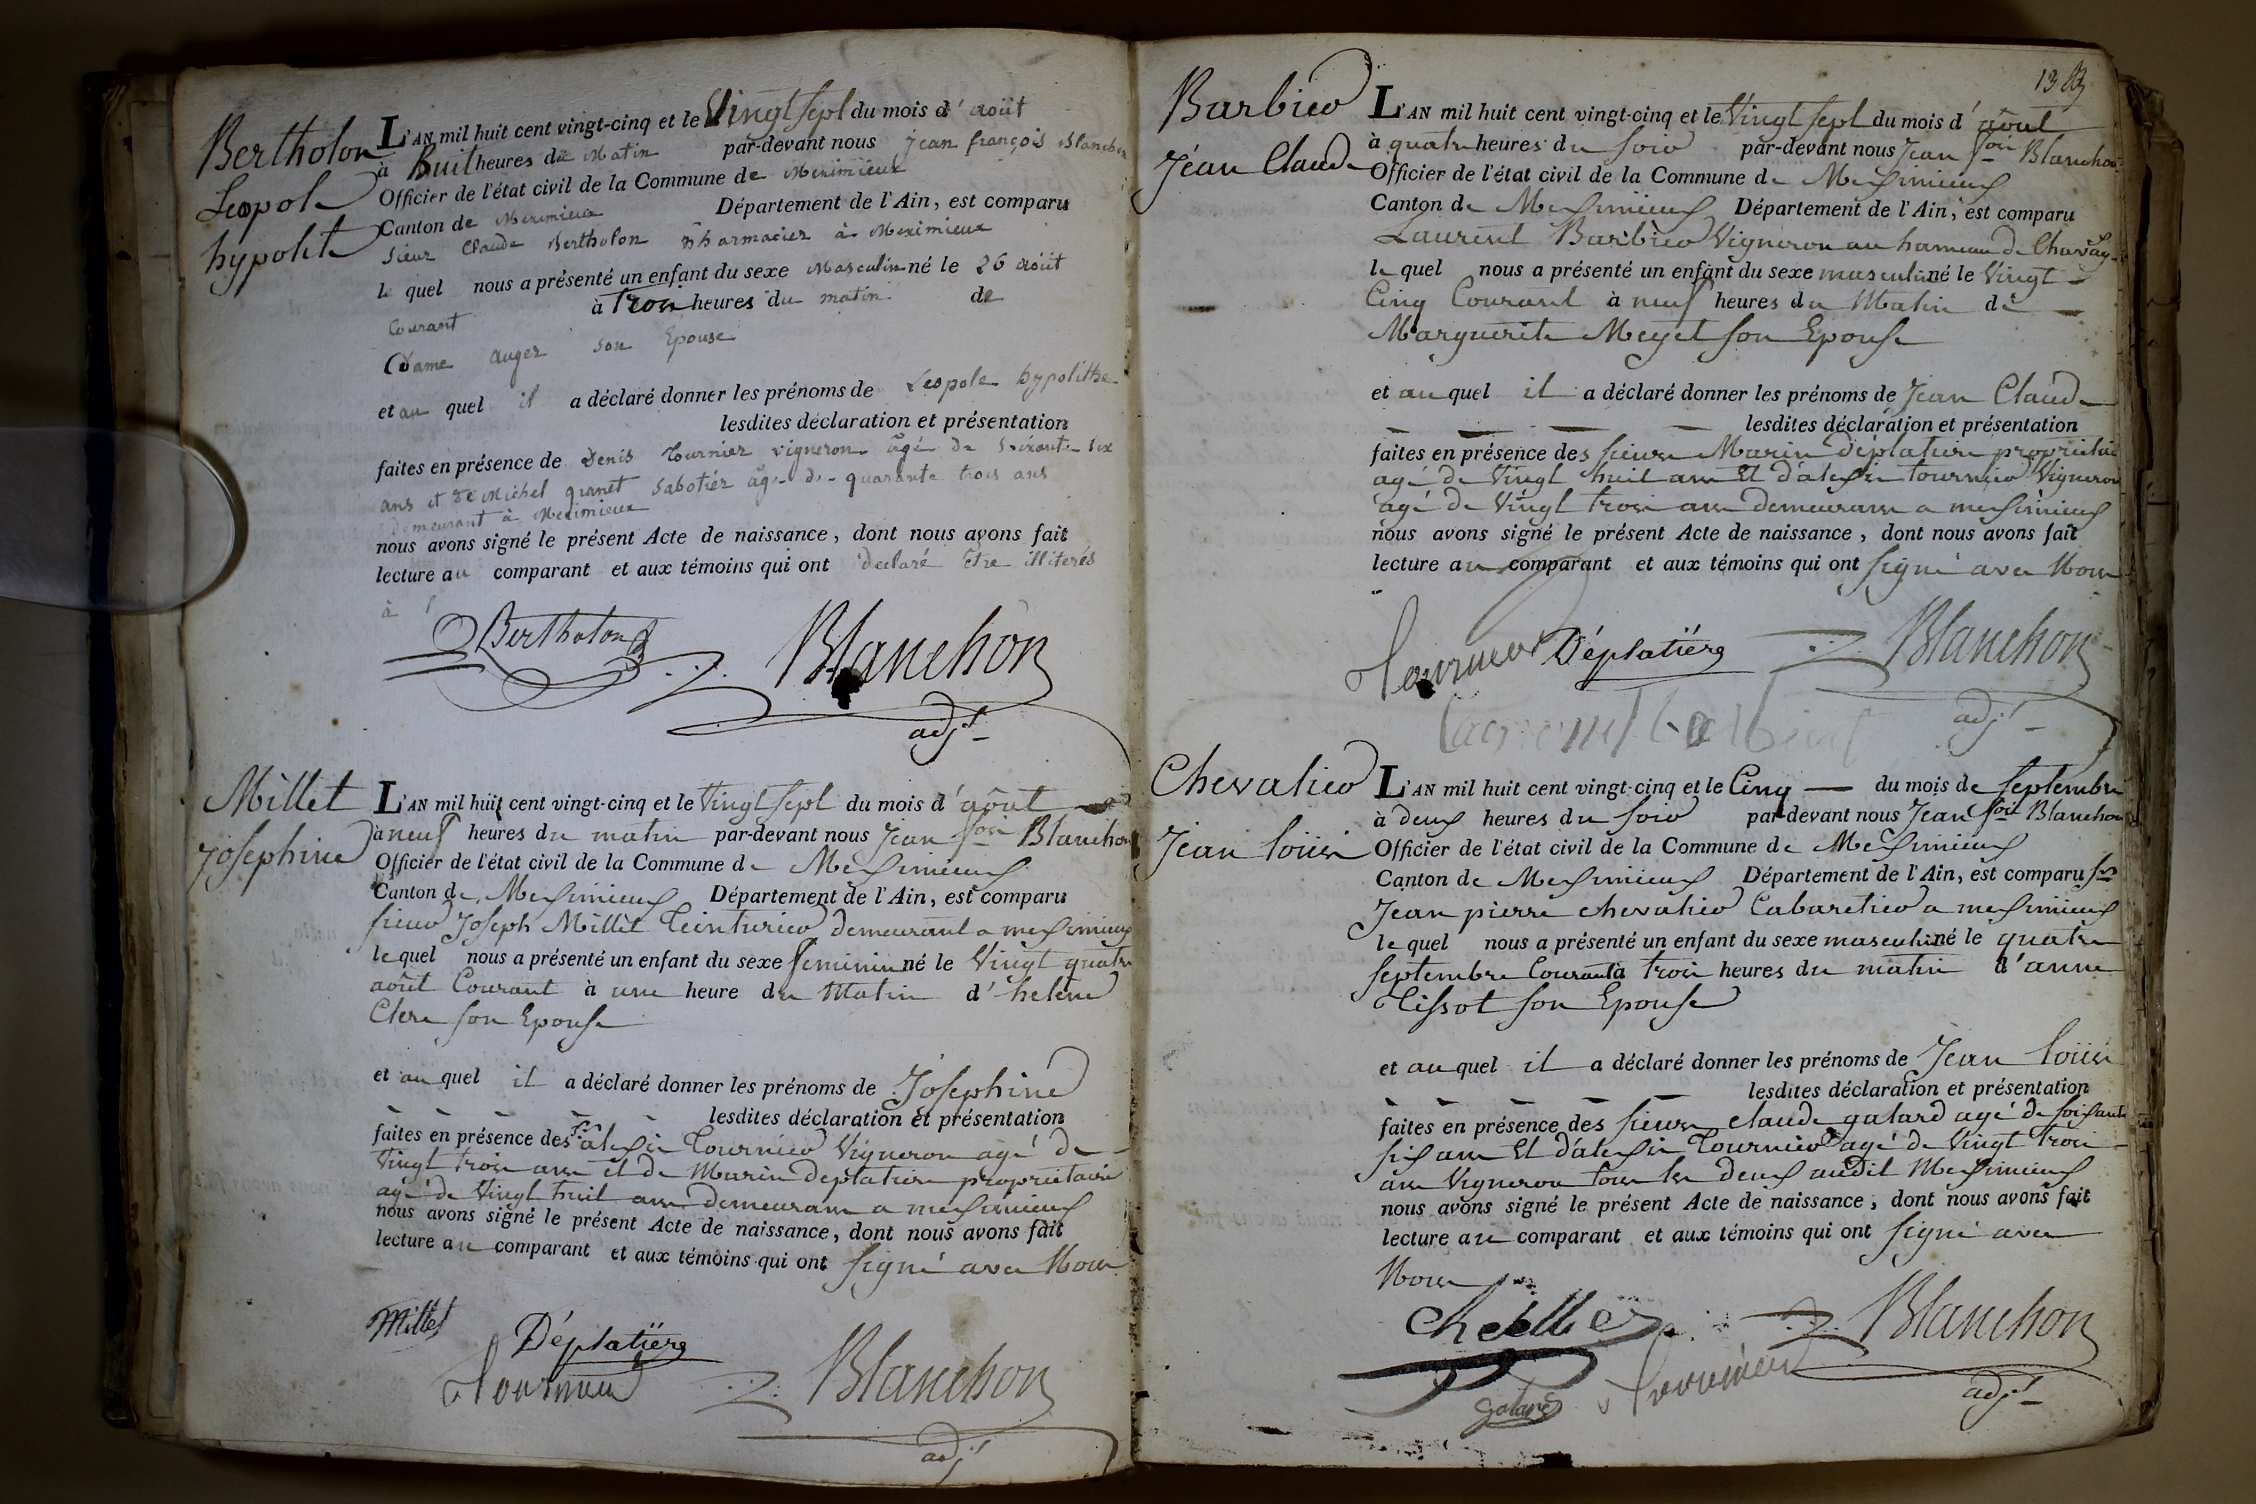 Bertholon
Leopole
hypolite
L'AN mil huit cent vingt-cinq et le Vingt Sept du mois d'août
à huit heures du Matin par-devant nous jean françois Blanchon
Officier de l'état civil de la Commune de Meximieux
Canton de Meximieux Département de l'Ain, est comparu
Sieur Claude Bertholon Pharmacier à Meximieux
le quel nous a présenté un enfant du sexe Masculin né le 26 août
Courant à trois heures du matin de
Dame auger son Epouse
et au quel il a déclaré donner les prénoms de Leopole hypolithe
lesdites déclaration et présentation
faites en présence de Denis Tournier vigneron âgé de Soixante six
ans et de Michel granet Sabotier âgé de quarante trois ans
demeurant à Meximieux
nous avons signé le présent Acte de naissance, dont nous avons fait
lecture au comparant et aux témoins qui ont declaré être illiterés
à
Bertholon Blanchon
adjt
Millet
Josephine
L'AN mil huit cent vingt-cinq et le Vingt Sept du mois d'août
à neuf heures du matin par-devant nous Jean fois Blanchon
Officier de l'état civil de la Commune de Meximieux
Canton de Meximieux Département de l'Ain, est comparu
sieur Joseph Millet Teinturier demeurant a meximieux
le quel nous a présenté un enfant du sexe feminin né le Vingt quatre
août Courant à une heure du Matin d'helene
Clerc son Epouse
et au quel il a déclaré donner les prénoms de Josephine
lesdites déclaration et présentation
faites en présence des Srs alexis Tournier Vigneron agé de
Vingt trois ans et de Marin deplatiere proprietaire
agé de Vingt huit ans demeurans a meximieux
nous avons signé le présent Acte de naissance, dont nous avons fait
lecture au comparant et aux témoins qui ont signé avec Nous
Millet Déplatiëre
Tournier Blanchon
adjt
13
Barbier
Jean Claude
L'AN mil huit cent vingt-cinq et le Vingt Sept du mois d'août
à quatre heures du soir par-devant nous Jean fois Blanchon
Officier de l'état civil de la Commune de Meximieux
Canton de Meximieux Département de l'Ain, est comparu
Laurent Barbier Vigneron au hameau de
le quel nous a présenté un enfant du sexe masculin né le Vingt
Cinq Courant à neuf heures du Matin de
Marguerite Meyet son Epouse
et au quel il a déclaré donner les prénoms de Jean Claude
lesdites déclaration et présentation
faites en présence des sieurs Marin déplatiere proprietaire
agé de Vingt huit ans Et d'alexis tournier Vigneron
agé de Vingt trois ans demeurans a meximieux
nous avons signé le présent Acte de naissance, dont nous avons fait
lecture au comparant et aux témoins qui ont signé avec Nous
Tournier Déplatiëre Blanchon
adjt
Chevalier
Jean loüis
L'AN mil huit cent vingt-cinq et le Cinq du mois de Septembre
à deux heures du soir par-devant nous Jean fois Blanchon
Officier de l'état civil de la Commune de Meximieux
Canton de Meximieux Département de l'Ain, est comparu Sr
Jean pierre chevalier Cabaretier a meximieux
le quel nous a présenté un enfant du sexe masculin né le quatre
Septembre Courant à trois heures du matin d'anne
Tissot son Epouse
et au quel il a déclaré donner les prénoms de Jean loüis
lesdites déclaration et présentation
faites en présence des sieurs claude galard agé de soixante
six ans Et d'alexis Tournier agé de Vingt trois
ans Vigneron tous les deux audit Meximieux
nous avons signé le présent Acte de naissance, dont nous avons fait
lecture au comparant et aux témoins qui ont signé avec
Nous
Blanchon
galard Tournier adjt